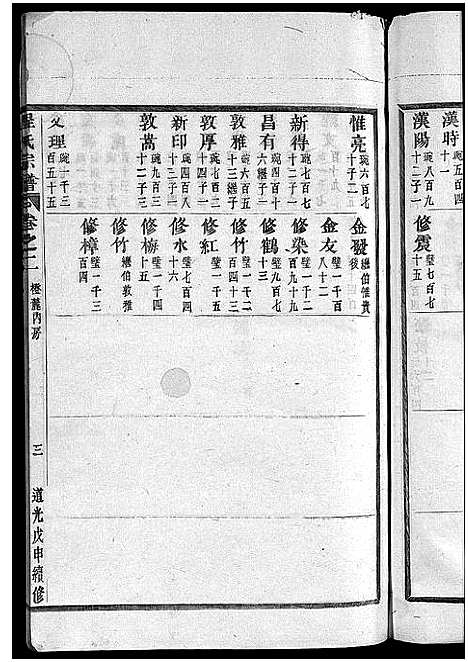 漢時 琬五百四十一
漢陽 琬八百八十二子一
修震 璧七百七十五
惟亮 琬六百七十子二
金發 繼伯惟貴後
金友 璧一千百八十二
新得 琬七百七十四子二
修染 璧一千一百九十九
昌有 琬四百七十六繼子一
修鶴 璧一百七十三
敦雅 琬六百五十三繼子一
修竹 璧一千一百四十三
敦厚 琬七百二十四子一
修紅
新印 琬四百八十二子一
修水 璧七百四十六
敦嵩 琬九百三十二子三
修梅 璧一千四十五
修竹 繼伯敦雅
文理 琬一千三百五十五
修樟 璧一千三百四
程氏宗譜 卷之十二 橙麓內房 三 道光戊申續修